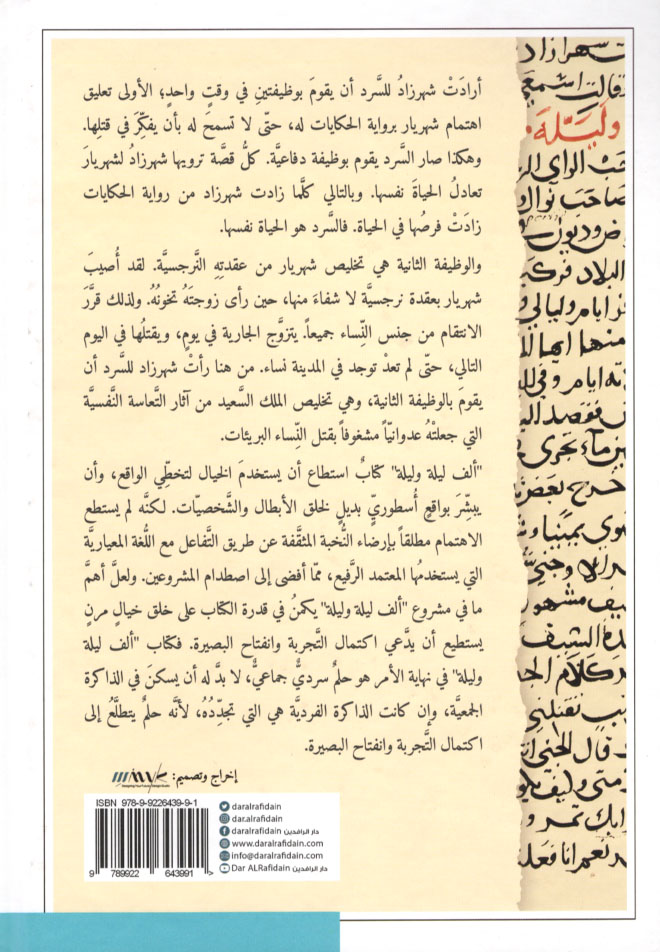 أرادَتْ شهرزادُ للسَّرد أن يقومَ بوظيفتينِ في وقتٍ واحدٍ؛ الأولى تعليق
اهتمام شهريار برواية الحكايات له، حتّى لا تسمحَ له بأن يفكّرَ في قتلِها.
وهكذا صار السَّرد يقوم بوظيفة دفاعيَّة. كلُّ قصَّة ترويها شهرزادُ لشهريارَ
تعادلُ الحياةَ نفسها. وبالتالي كلَّما زادت شهرزاد من رواية الحكايات
زادَتْ فرصُها في الحياة. فالسَّرد هو الحياة نفسها.
والوظيفة الثانية هي تخليص شهريار من عقدتِهِ النَّرجسيَّة. لقد أُصيبَ
شهريار بعقدة نرجسيَّة لا شفاءَ منها، حين رأى زوجتَهُ تخونُهُ. ولذلك قرَّرَ
الانتقام من جنس النِّساء جميعاً. يتزوَّج الجارية في يومٍ، ويقتلُها في اليوم
التالي، حتّى لم تعدْ توجد في المدينة نساء. من هنا رأتْ شهرزاد للسَّرد أن
يقومَ بالوظيفة الثانية، وهي تخليص الملك السَّعيد من آثار التَّعاسة النَّفسيَّة
التي جعلتْهُ عدوانيّاً مشغوفاً بقتل النِّساء البريئات.
"ألف ليلة وليلة" كتابٌ استطاع أن يستخدمَ الخيال لتخطّي الواقع، وأن
يبشِّرَ بواقعٍ أُسطوريٍّ بديلٍ لخلق الأبطال والشَّخصيّات. لكنَّه لم يستطع
الاهتمام مطلقاً بإرضاء النُّخبة المثقَّفة عن طريق التَّفاعل مع اللُّغة المعياريَّة
التي يستخدمُها المعتمد الرَّفيع، ممّا أفضى إلى اصطدام المشروعين. ولعلَّ أهمَّ
ما في مشروع "ألف ليلة وليلة" يكمنُ في قدرة الكتاب على خلق خيالٍ مرنٍ
يستطيع أن يدَّعي اكتمال التَّجربة وانفتاح البصيرة. فكتاب "ألف ليلة
وليلة" في نهاية الأمر هو حلمٌ سرديٌّ جماعيٌّ، لا بدَّ له أن يسكنَ في الذاكرة
الجمعيَّة، وإن كانت الذاكرة الفرديَّة هي التي تجدِّدُهُ، لأنَّه حلمٌ يتطلَّعُ إلى
اكتمال التَّجربة وانفتاح البصيرة.
إخراج وتصميم:
ISBN 978-9-9226439-9-1
9 789922 643991 >
daralrafidain
dar.alrafidain
daralrafidain دار الرافدين
www.daralrafidain.com
info@daralrafidain.com
Dar ALRafidain دار الرافدين
شهرازاد
قالت
وليلة
الراي
صاحب نوال
البلاد
ايام وليالي
منها
ايام وفي
فقصد
تجري
خرج
وجني
مشهور
كلام
قال الجني